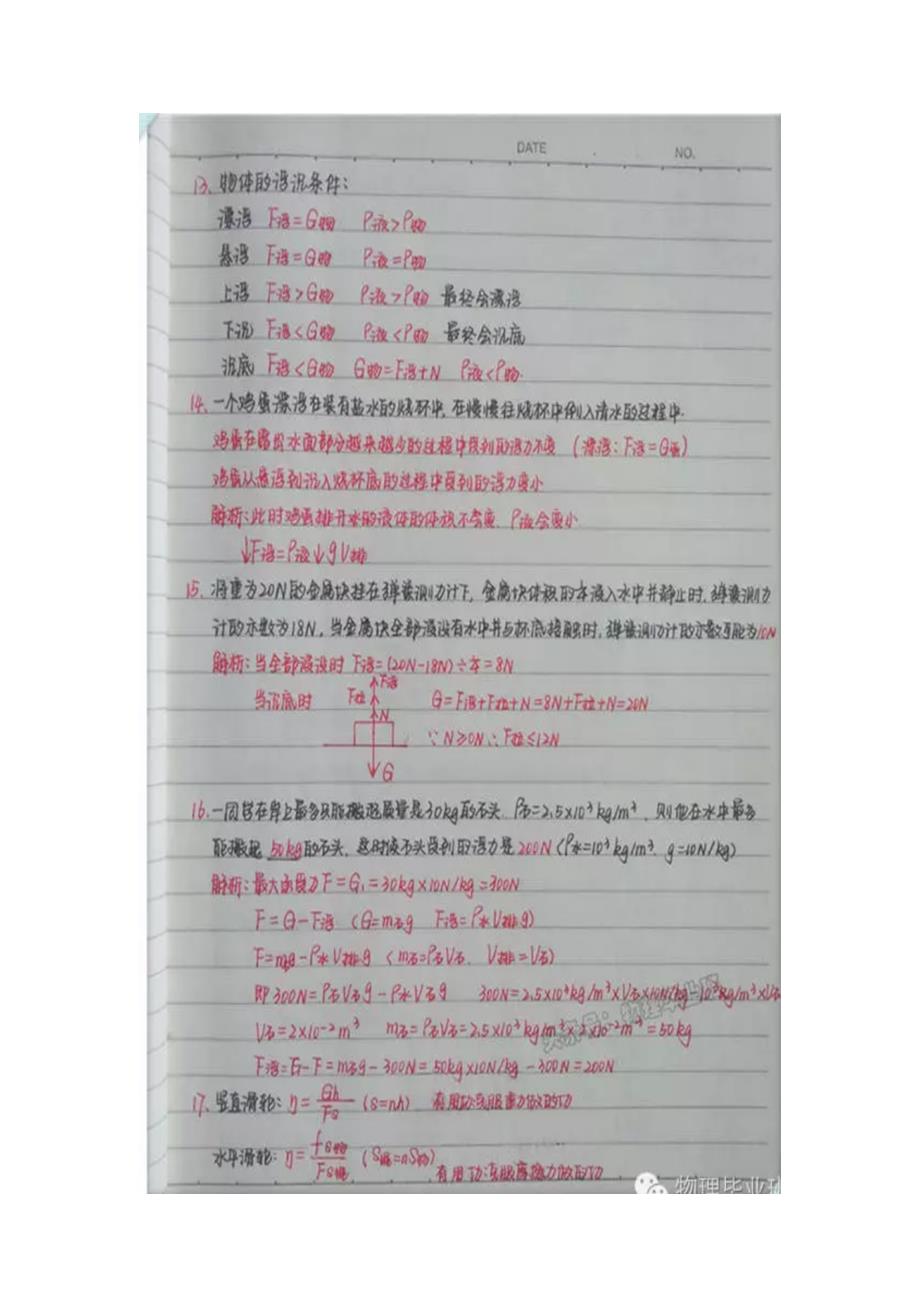 DATE
NO.
13、物体的浮沉条件:
漂浮 F浮=G物 ρ液>ρ物
悬浮 F浮=G物 ρ液=ρ物
上浮 F浮>G物 ρ液>ρ物 最终会漂浮
下沉 F浮<G物 ρ液<ρ物 最终会沉底
沉底 F浮<G物 G物=F浮+N ρ液<ρ物.
14、一个鸡蛋漂浮在装有盐水的烧杯中,在慢慢往烧杯中倒入清水的过程中.
鸡蛋在露出水面部分越来越少的过程中受到的浮力不变 (漂浮:F浮=G蛋)
鸡蛋从悬浮到沉入烧杯底的过程中受到的浮力变小
解析:此时鸡蛋排开水的液体的体积不会变、ρ液会变小
↓F浮=ρ液↓gV排
15、将重为20N的金属块挂在弹簧测力计下,金属块体积的 浸入水中并静止时,弹簧测力
计的示数为18N,当金属块全部浸没有水中并与杯底接触时,弹簧测力计的示数可能为10N
解析:当全部浸没时 F浮=(20N-18N)÷ =8N
F浮
当沉底时 F拉 G=F浮+F拉+N=8N+F拉+N=20N
N
∵N≥0N∴F拉≤12N
G
16、一同学在岸上最多只能搬起质量是30kg的石头、ρ石=2.5×10³kg/m³、则他在水中最多
能搬起 50kg的石头,这时候石头受到的浮力是200N(ρ水=10³kg/m³、g=10N/kg)
解析:最大 力F=G₁=30kg×10N/kg=300N
F=G-F浮 (G=m石g F浮=ρ水V排g)
F=m石g-ρ水V排g (m石=ρ石V石、V排=V石)
即300N=ρ石V石g-ρ水V石g 300N=2.5×10³kg/m³×V石×10N/kg-10³kg/m³×V石
V石=2×10⁻²m³ m石=ρ石V石=2.5×10³kg/m³×2×10⁻²m³=50kg
F浮=G-F=m石g-300N=50kg×10N/kg-300N=200N
17、竖直滑轮:η=Gh/Fs (s=nh) 有用功克服重力做的功
水平滑轮:η=fs物/Fs绳 (S绳=nS物) 有用功:克服摩擦力做的功
头条号:物理毕业班
物理毕业班